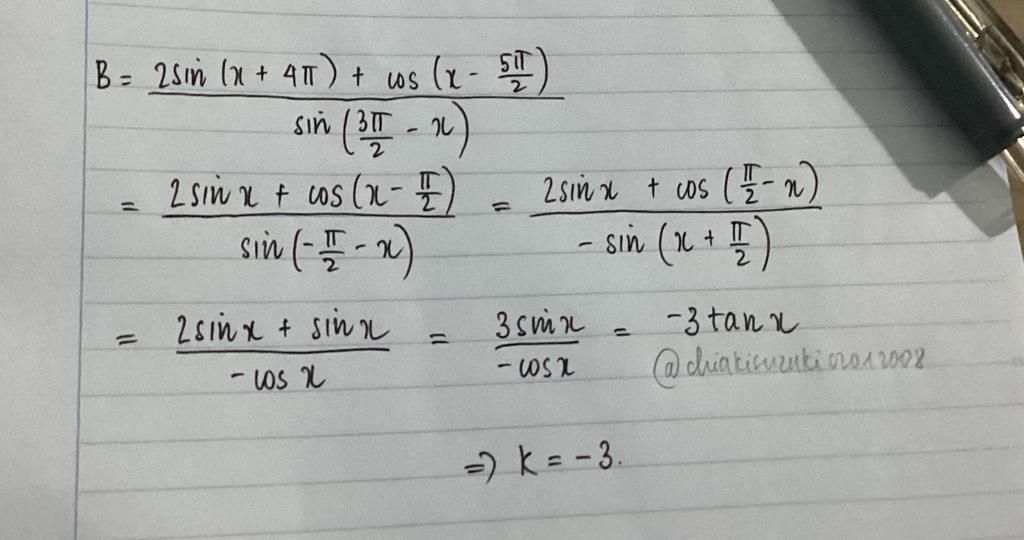 B = (2sin (x + 4π) + cos (x - 5π/2)) / (sin (3π/2 - x))
= (2sin x + cos (x - π/2)) / (sin (-π/2 - x)) = (2sin x + cos (π/2 - x)) / (- sin (x + π/2))
= (2sin x + sin x) / (- cos x) = (3 sin x) / (- cos x) = -3 tan x
⇒ k = -3.